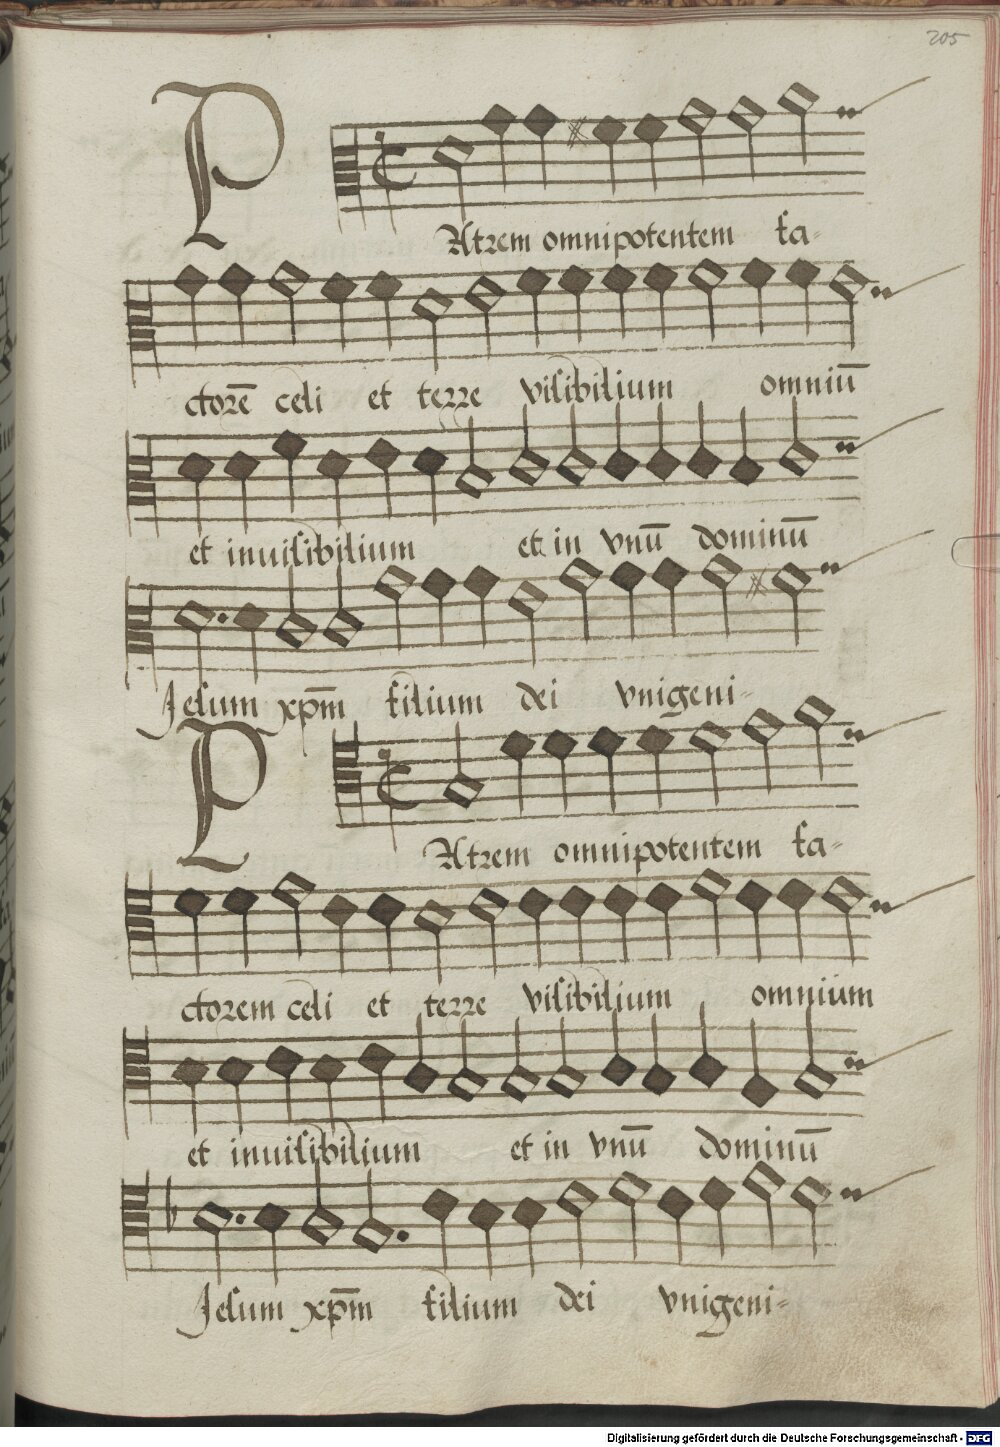 205
PAtrem omnipotentem fa-
ctorē celi et terre visibilium omniū
et inuisibilium et in vnū dominū
Jesum xp̄m filium dei vnigeni-
PAtrem omnipotentem fa-
ctorem celi et terre visibilium omnium
et inuisibilium et in vnū dominū
Jesum xp̄m filium dei vnigeni-
Digitalisierung gefördert durch die Deutsche Forschungsgemeinschaft - DFG